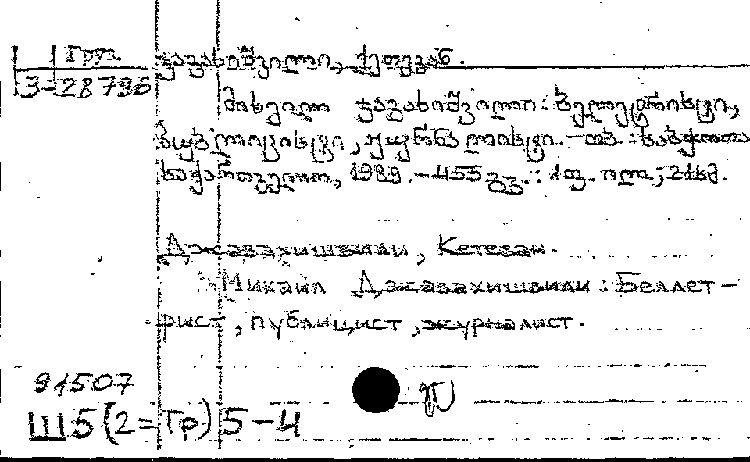 Груз
ჯავახიშვილი, ქეთევან.
3-28796
მიხეილ ჯავახიშვილი: ბელეტრისტი,
პუბლიცისტი, ჟურნალისტი. — თბ.: საბჭოთა
საქართველო, 1989. — 455 გვ.: 1 ფ. ილ.; 21 სმ.
Джавахишвили, Кетеван.
Михаил Джавахишвили: Беллет-
рист, публицист, журналист.
91507
Ш5(2=Гр)5-4